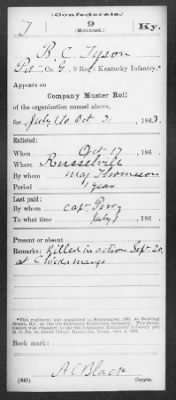 (Confederate.)
T 9 Ky.
(Mounted.)
B. C. Tyson
Pvt, Co. G, 9 Reg't Kentucky Infantry.*
Appears on
Company Muster Roll
of the organization named above,
for July 1 to Oct 31, 1863.
Enlisted:
When Oct 17, 186
Where Russelville
By whom Maj Thomason
Period 1 year
Last paid:
By whom Capt
To what time July 1, 186
Present or absent
Remarks: Killed in action Sept. 20,
at Chickamauga
Book mark:
A C Black
(642) Copyist.